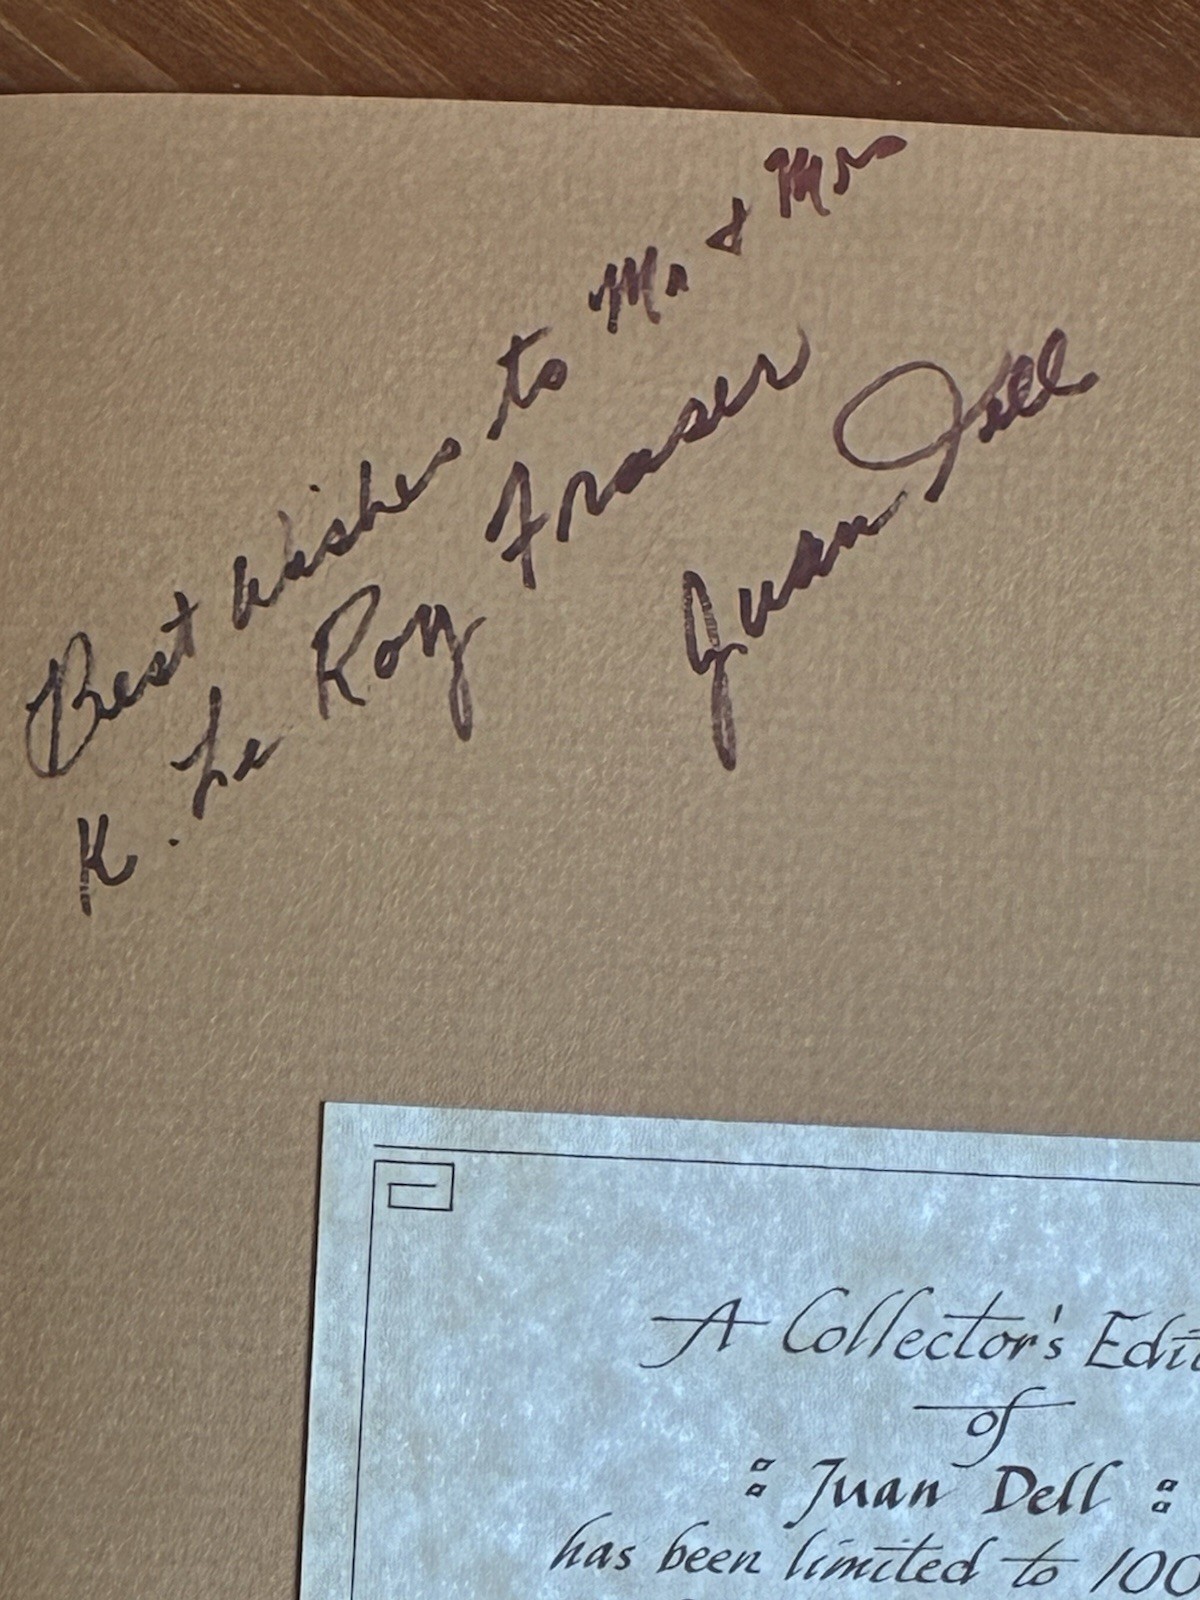 Best wishes to Mr & Mrs
K. Le Roy Fraser
Juan Dell
A Collector's Edit
of
: Juan Dell :
has been limited to 100